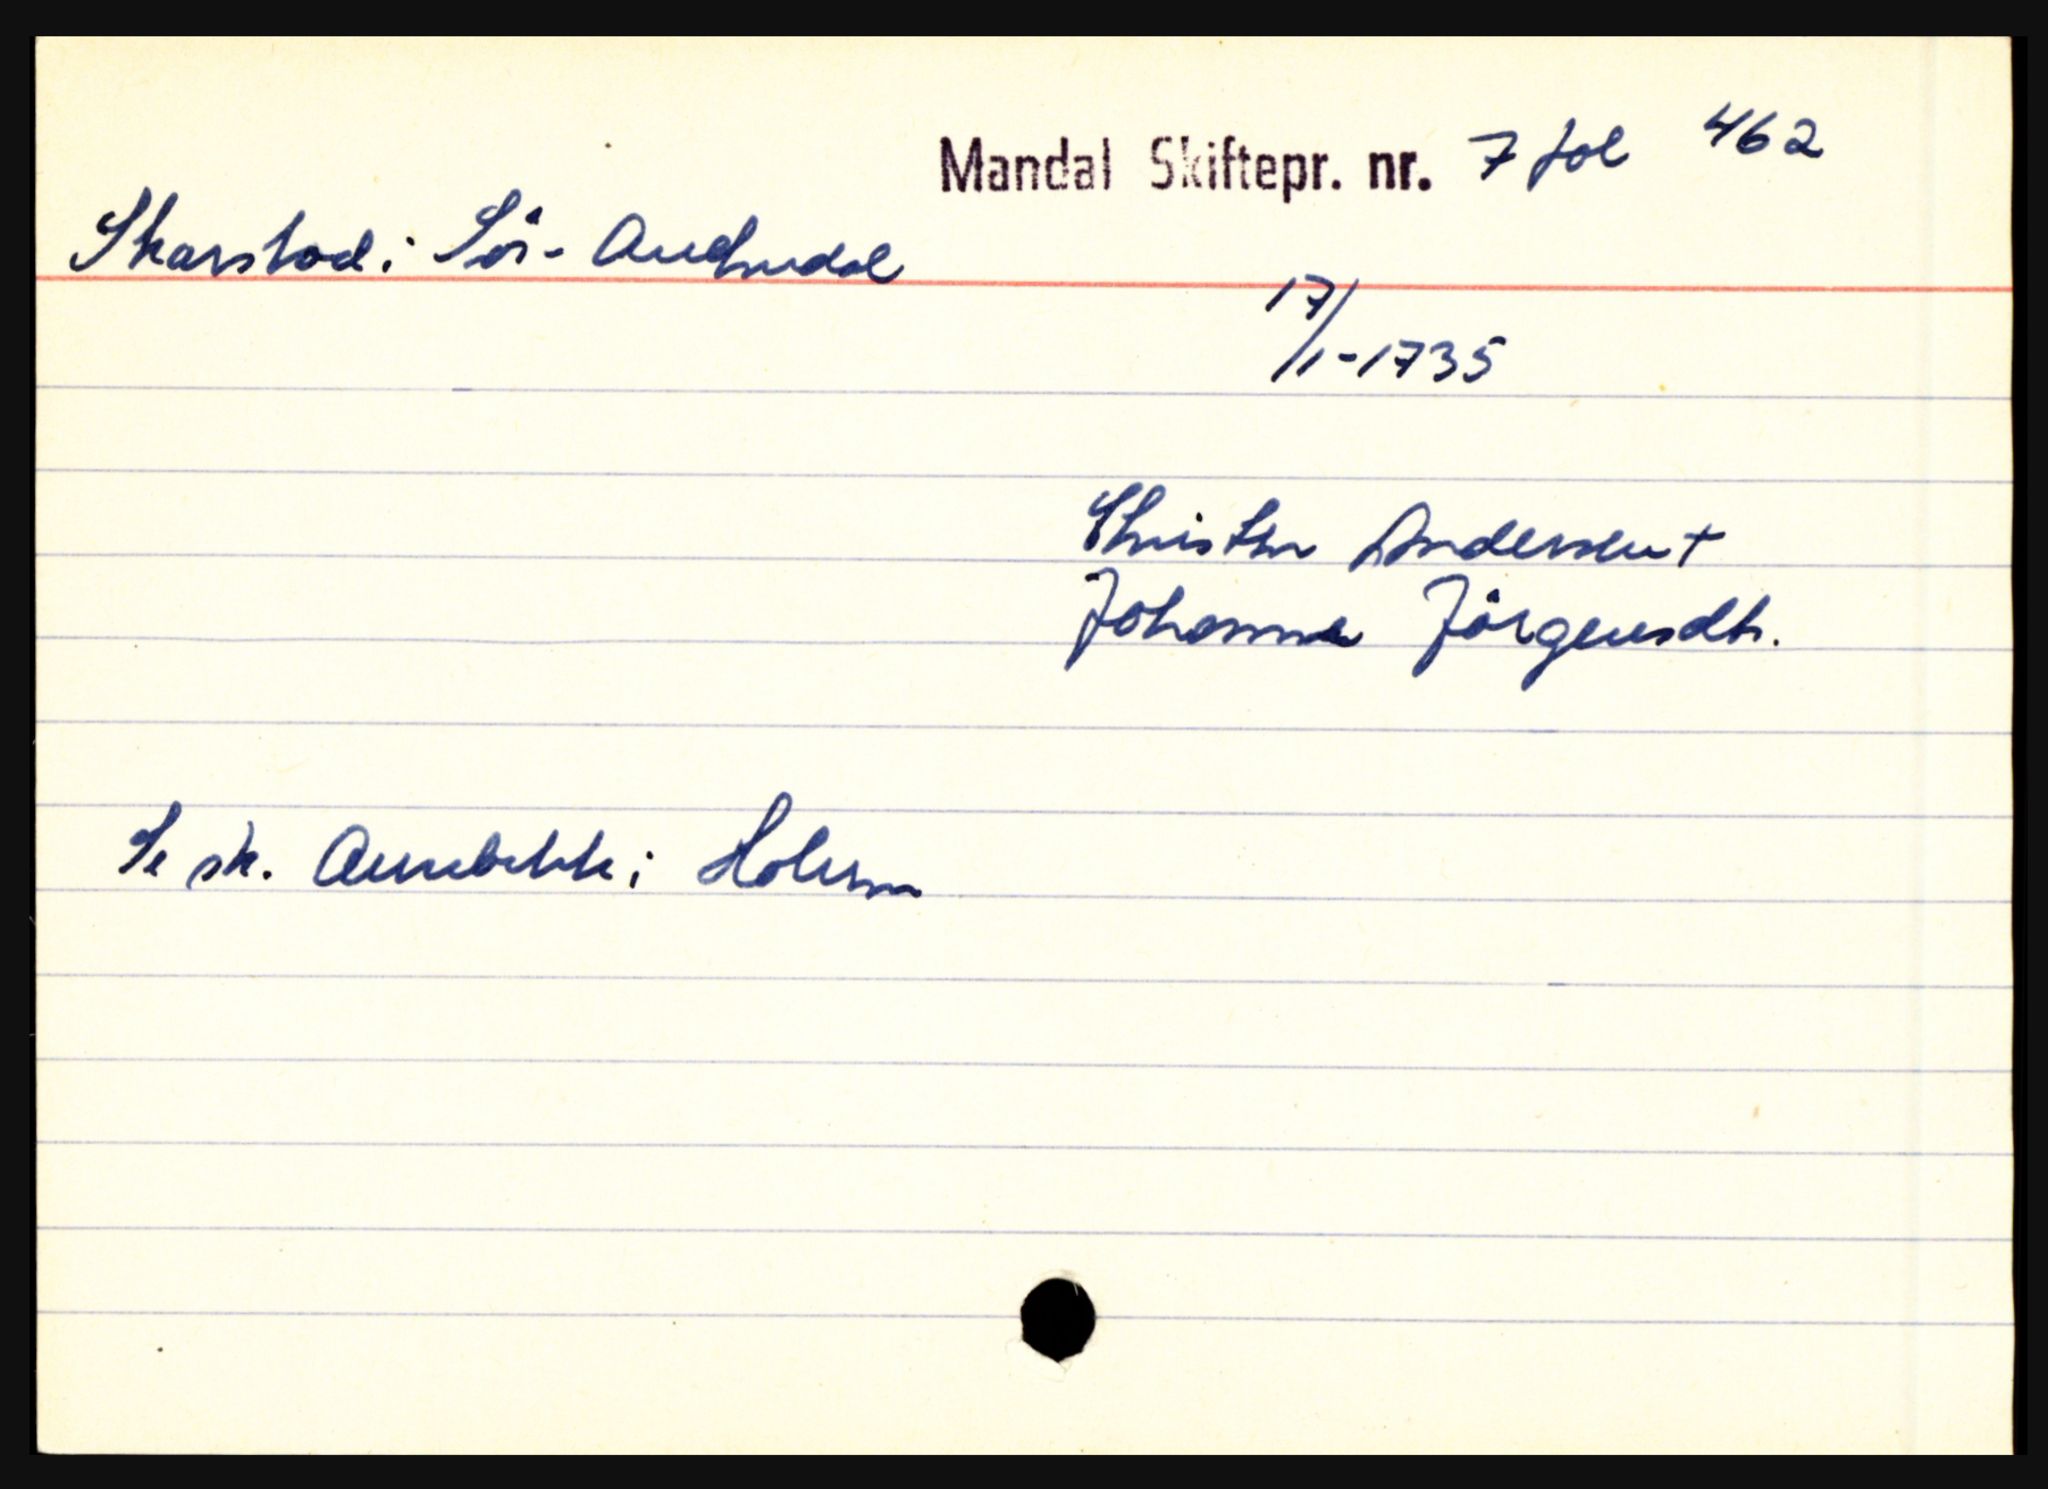 Mandal Skiftepr. nr. 7 fol 462
Skarstad i Sör-Audnedal
17/1-1735
Christen Andersen +
Johanna Jörgensdtr.
Se sk. i Holum